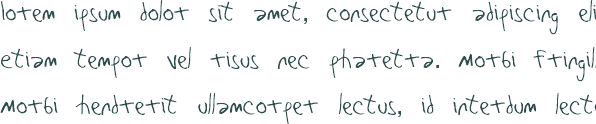 lorem ipsum dolor sit amet, consectetur adipiscing eli
etiam tempor vel risus nec pharetra. morbi fringil
morbi hendrerit ullamcorper lectus, id interdum lect